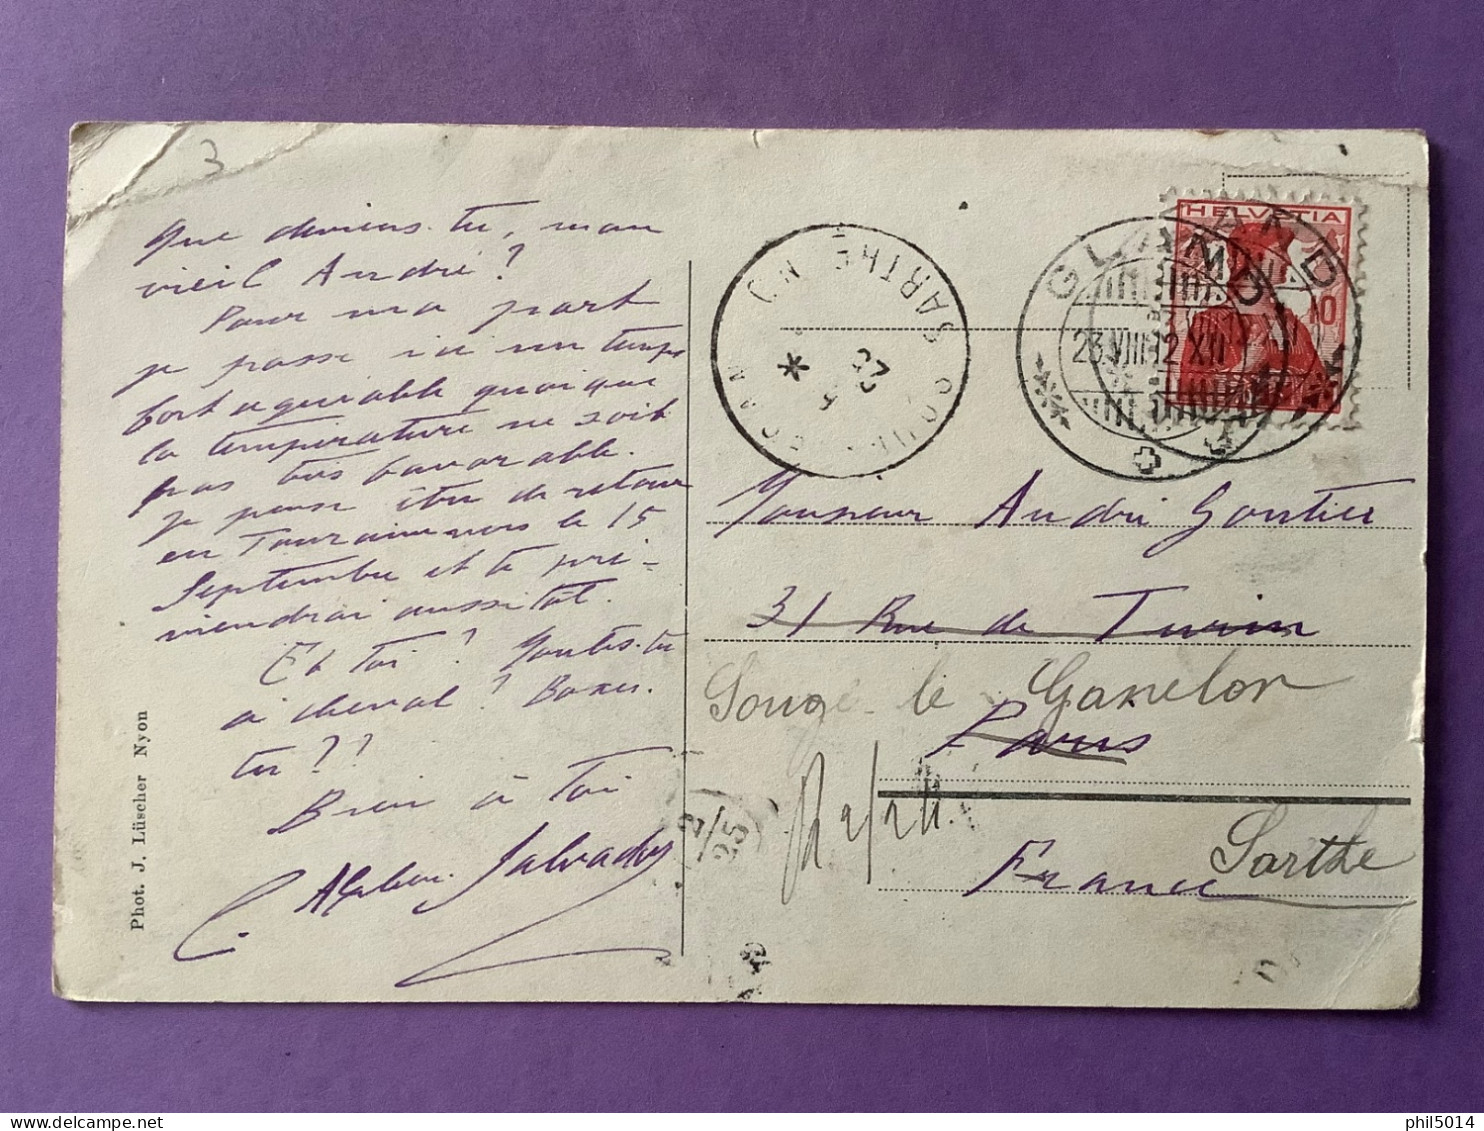 3
que deviens-tu, mon
vieil André ?
Pour ma part
je passe ici un temps
fort agréable quoique
la température ne soit
pas très favorable.
je pense être de retour
en Touraine vers le 15
Septembre et te pré-
viendrai aussitôt.
Et toi ? Montes-tu
à cheval ? Boxes-
tu ??
Bien à toi
Salvador
Phot. J. Lüscher Nyon
SARTHE
HELVETIA
10
GLAND
23.VIII.12.XII
Monsieur André Gontier
31 Rue de Turin
Sougé-le Ganelon
Paris
Sarthe
France
phil5014